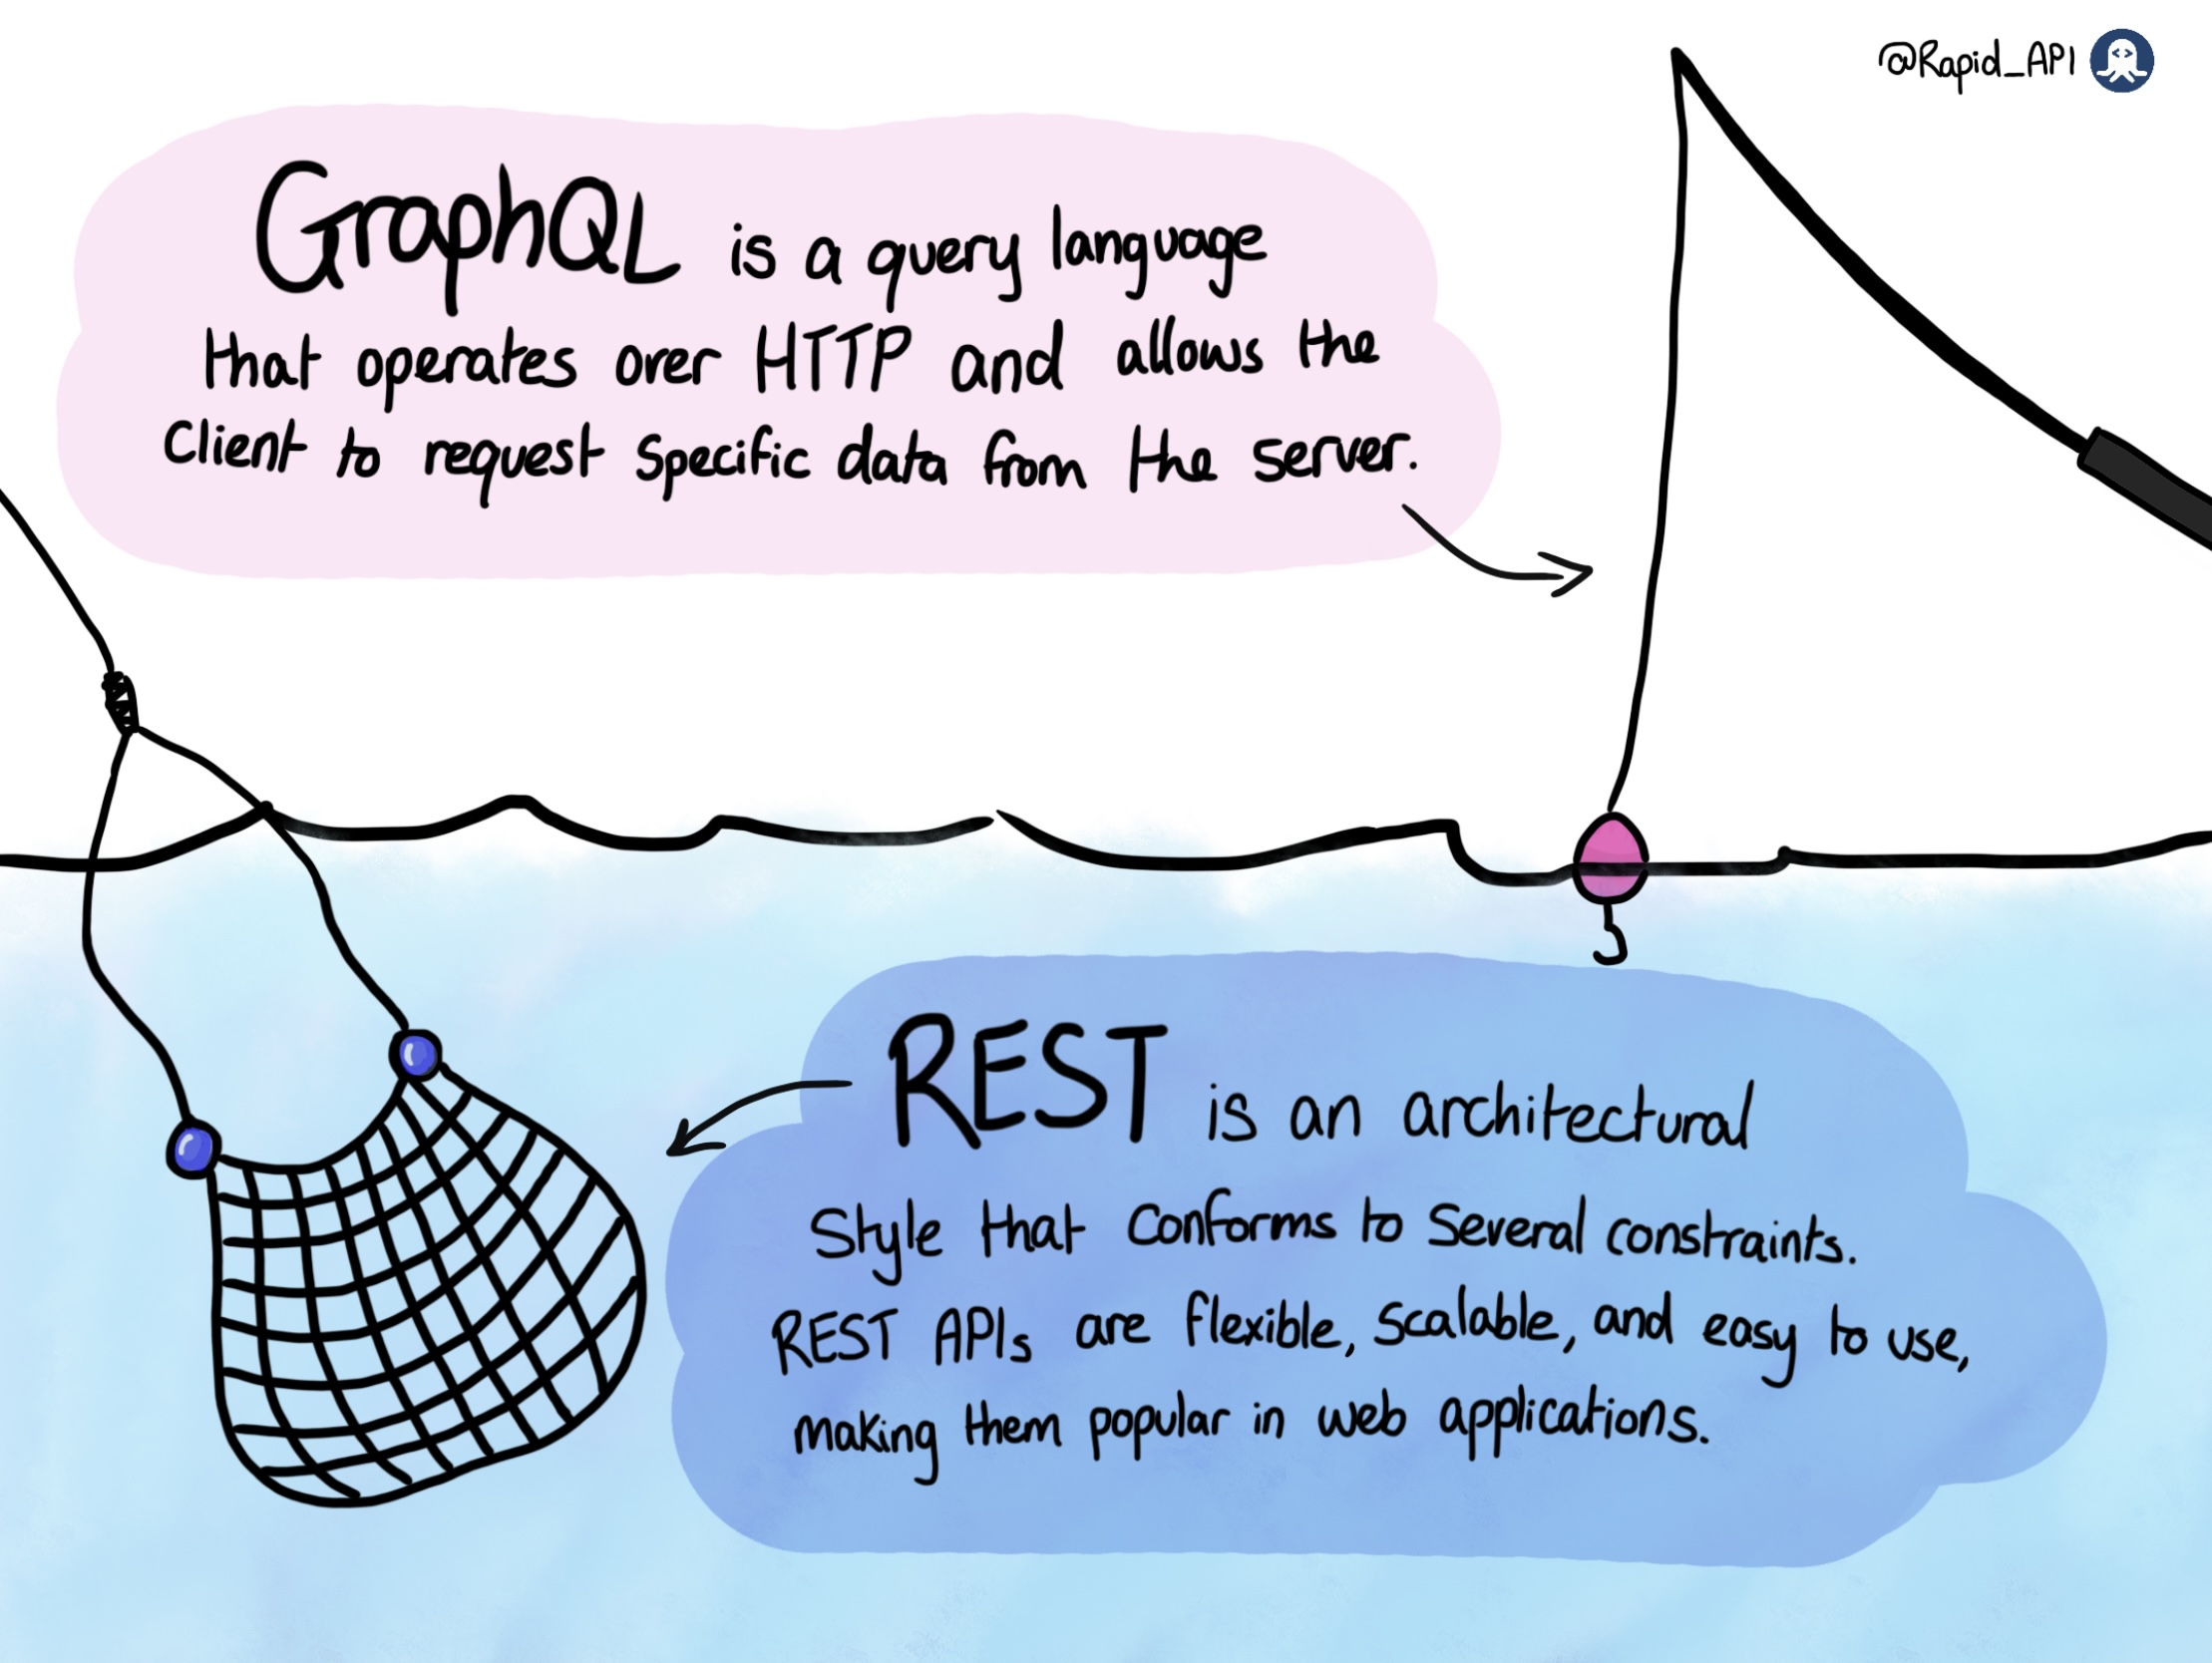 @Rapid_API
GraphQL is a query language
that operates over HTTP and allows the
Client to request specific data from the server.
REST is an architectural
Style that conforms to several constraints.
REST APIs are flexible, scalable, and easy to use,
making them popular in web applications.